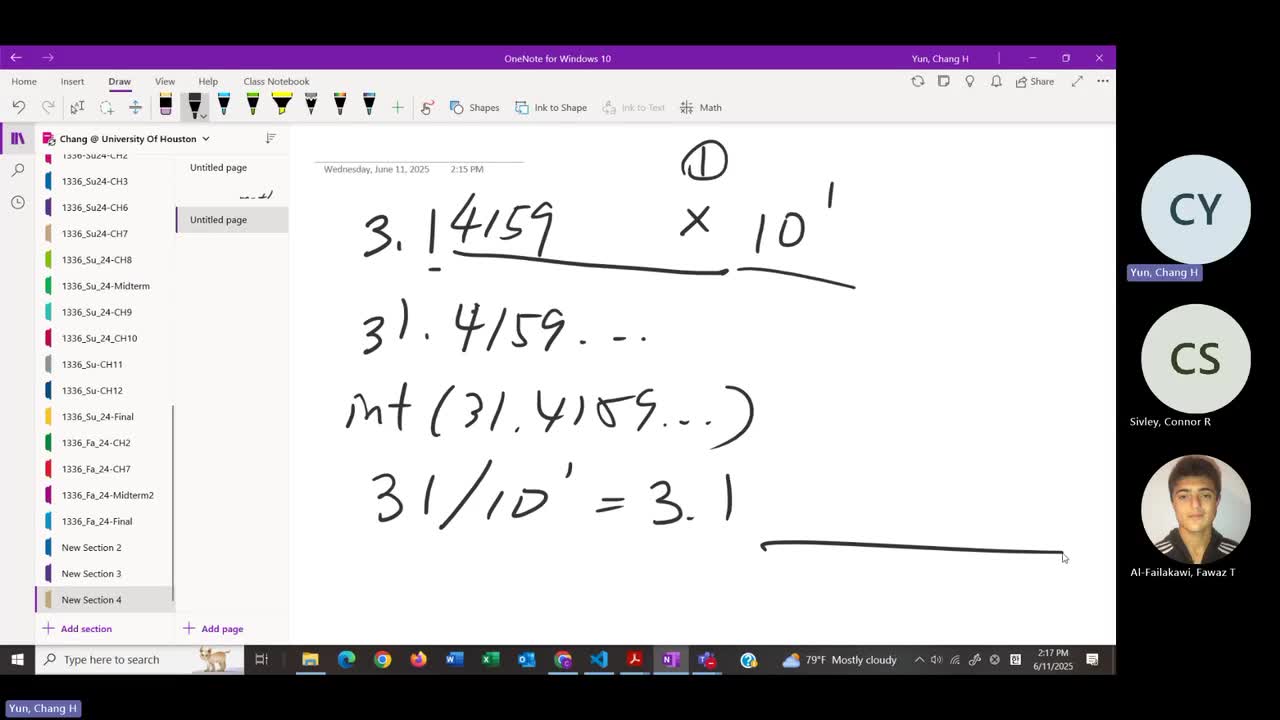 OneNote for Windows 10
Yun, Chang H
Home Insert Draw View Help Class Notebook
Share
Shapes Ink to Shape Ink to Text Math
Chang @ University Of Houston
1336-Su24-CH2
1336_Su24-CH3
1336_Su24-CH6
1336_Su24-CH7
1336_Su_24-CH8
1336_Su_24-Midterm
1336_Su_24-CH9
1336_Su_24_CH10
1336_Su-CH11
1336_Su-CH12
1336_Su_24-Final
1336_Fa_24-CH2
1336_Fa_24-CH7
1336_Fa_24-Midterm2
1336_Fa_24-Final
New Section 2
New Section 3
New Section 4
Add section
Untitled page
Untitled page
Add page
Wednesday, June 11, 2025 2:15 PM
1
3.14159 × 10¹
31.4159...
int(31.4159...)
31/10¹ = 3.1
CY
Yun, Chang H
CS
Sivley, Connor R
Al-Failakawi, Fawaz T
Type here to search
79°F Mostly cloudy
2:17 PM
6/11/2025
Yun, Chang H